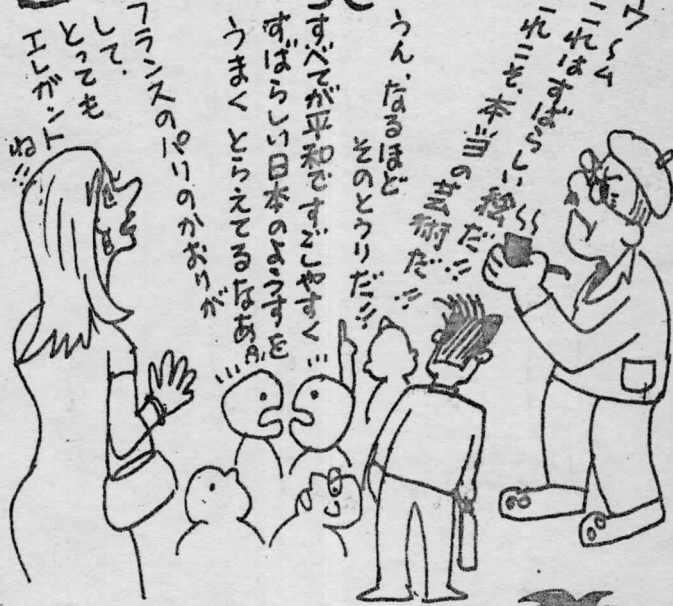 ウ〜ム
これはすばらしい絵だ!!
これこそ、本当の芸術だ!!
うん、なるほど
そのとうりだ!!
すべてが平和ですごしやすく…
すばらしい日本のようすを
うまくとらえてるなあ…
フランスのパリのかおりが
して、
とっても
エレガント
ね!!